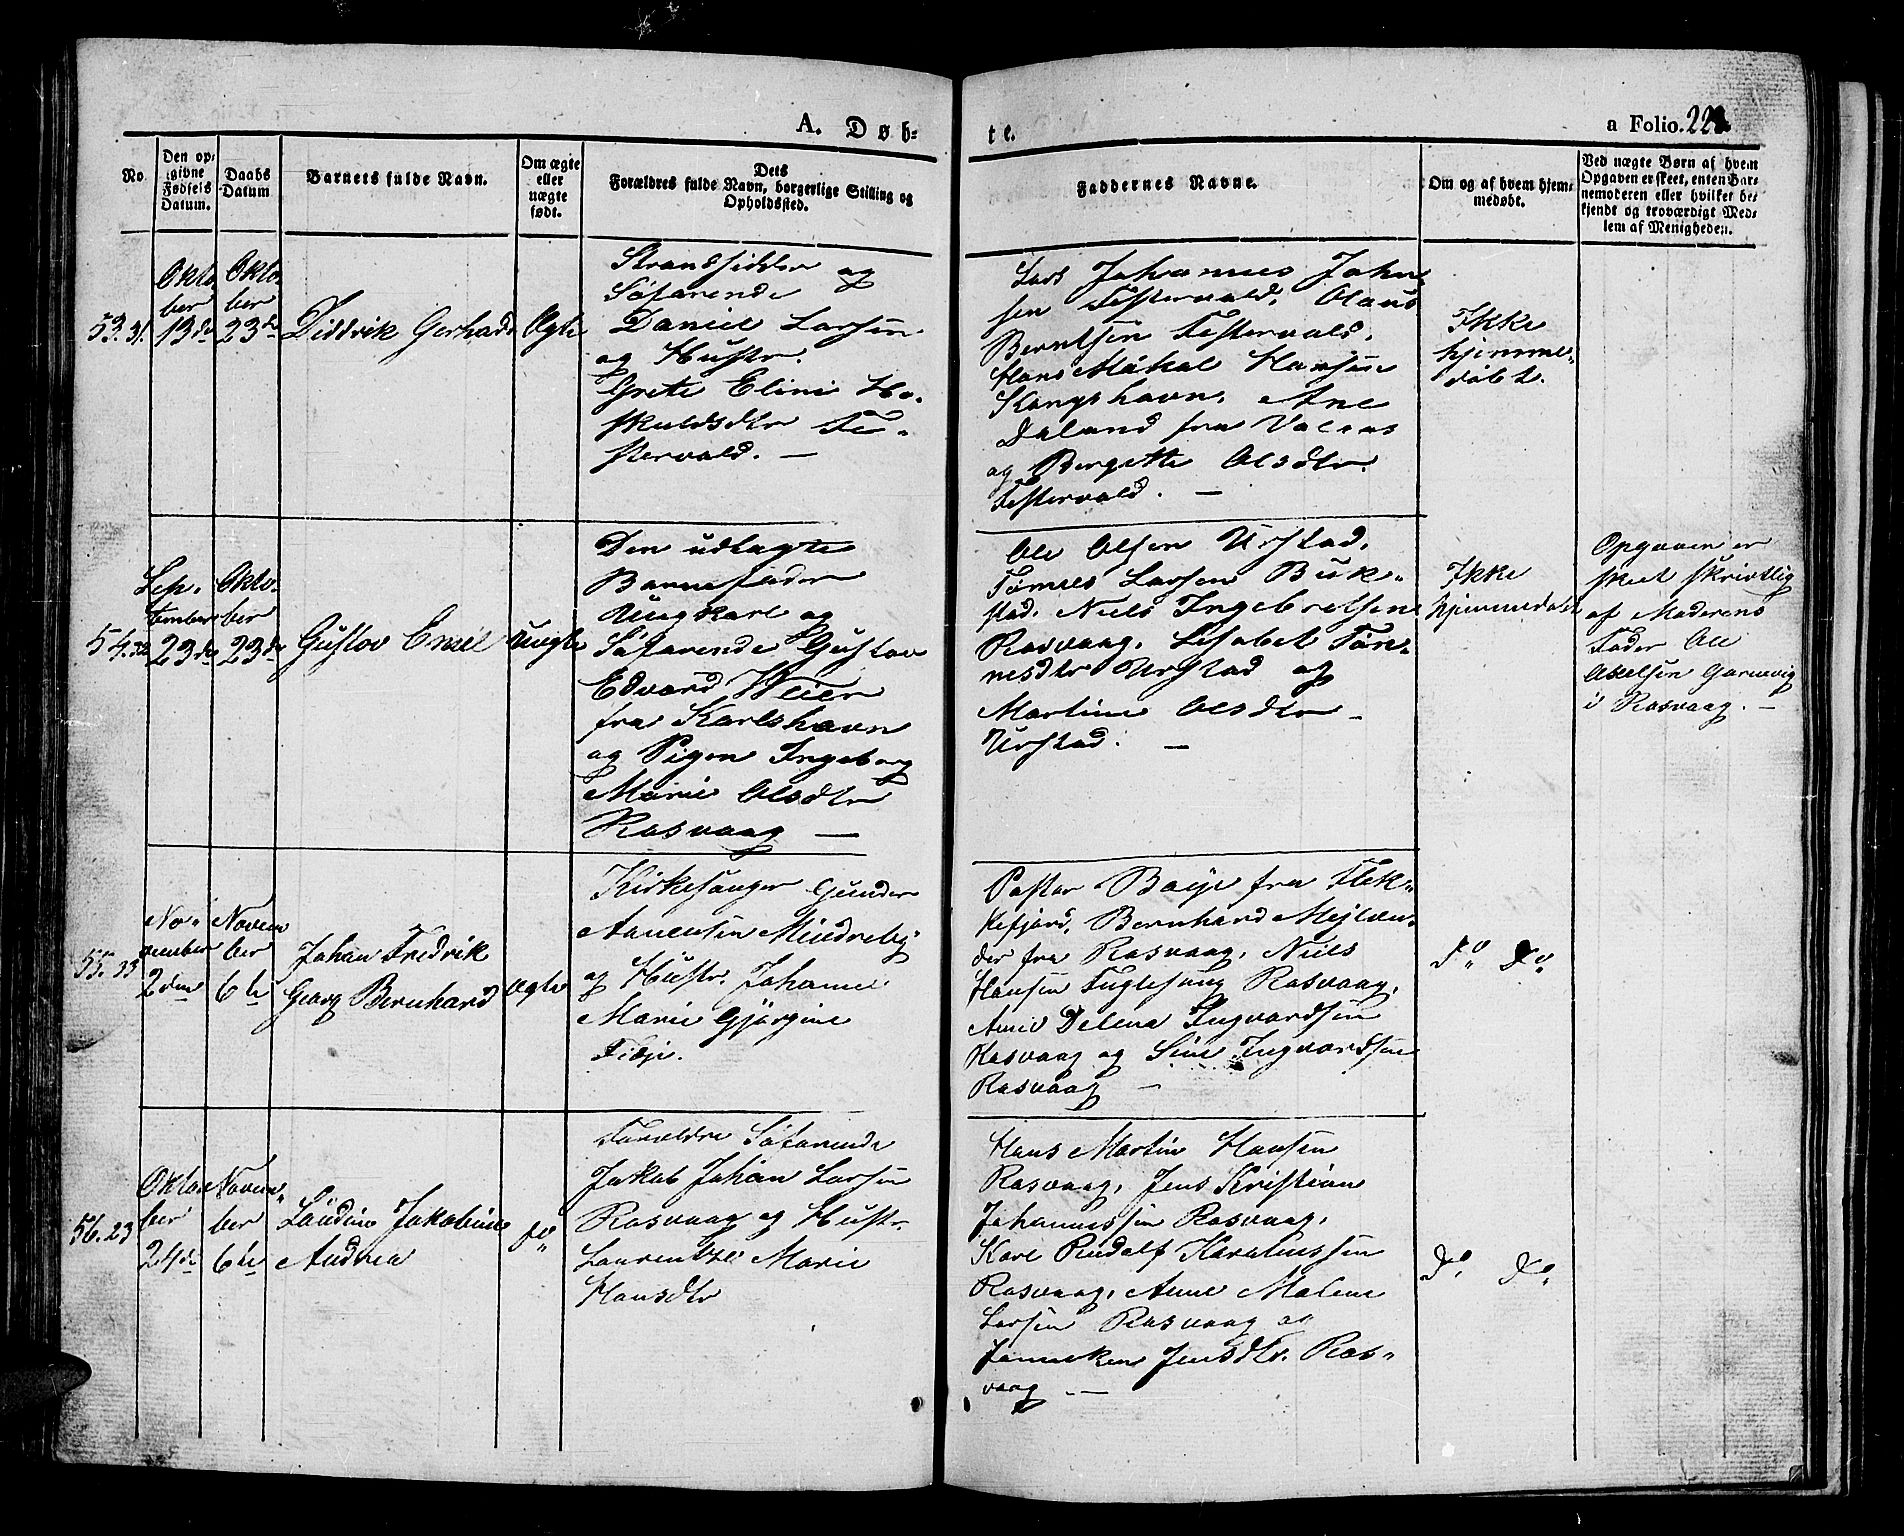 A. Døb-
te.
a Folio. 228.
No.
Den op-
givne
Fødsels
Datum.
Daabs
Datum
Barnets fulde Navn.
Om ægte
eller
uægte
født.
Dets
Forældres fulde Navn, borgerlige Stilling og
Opholdssted.
Faddernes Navne.
Om og af hvem hjem-
medøbt.
Ved uægte Børn af hvem
Opgaven er skeet, enten Bar-
nemoderen eller hvilket be-
kjendt og troværdigt Med-
lem af Menigheden.
53. 31.
Okto-
ber
13de
Okto-
ber
23de
Diddrik Gerhad
Ægte
Strandsidder og
Søfarende
Daniel Larsen
og Hustr.
Grete Elini Ho-
skuldsdtr Te-
stervald. —
Lars Johannes John-
sen Festervald, Olaus
Berntsen Festervald.
Hans Mikal Hansen
Kongshavn, Ane
Daland fra
og Bergette Olsdtr.
Festervald. —
Ikke
hjemme-
døbt.
54. 32
Sep-
tember
23de
Okto-
ber
23de
Gustov Emil
Uægte
Den udlagte
Barnefader
Ungkarl og
Søfarende Gustav
Edvard Weier
fra Karlshavn
og Pigen Ingeborg
Marie Olsdtr
Rasvaag —
Ole Olsen Urstad.
Tønnes Larsen Buk-
stad. Niels Ingebretsen
Rasvaag. Lisabet Tøn-
nesdtr Urstad og
Martine Olsdtr
Urstad. —
Ikke
hjemmedøbt
Opgaven er
skeet skrivtlig
af Moderens
Fader Ole
Axelsen Garnvig
i Rasvaag. —
55. 23
No-
vember
2den
Novem
ber
6te
Johan Fredrik
Georg Bernhard
Ægte
Kirkesanger Gunder
Aanensen Mindrebø
og Hustr. Johanne
Marie Gjørgine
Tidje.
Pastor Boije fra Flek-
kefjord, Bernhard Mejlæn-
der fra Rasvaag, Niels
Hansen Fuglesang Rasvaag,
Anne Delena Ingvardsen
Rasvaag og Sine Ingvardsen
Rasvaag —
Do Do
56. 23
Okto-
ber
24de
Novem-
ber
6te
Jakobine
Andrea
do
Forældre Søfarende
Jakob Johan Larsen
Rasvaag og Hustr.
Laurentze Marie
Hansdtr
Hans Martin Hansen
Rasvaag, Jens Kristian
Johannessen Rasvaag,
Karl Rudolf Korneliussen
Rasvaag, Anne Malene
Larsen Rasvaag og
Janneken Jensdtr. Ras-
vaag —
Do. Do.